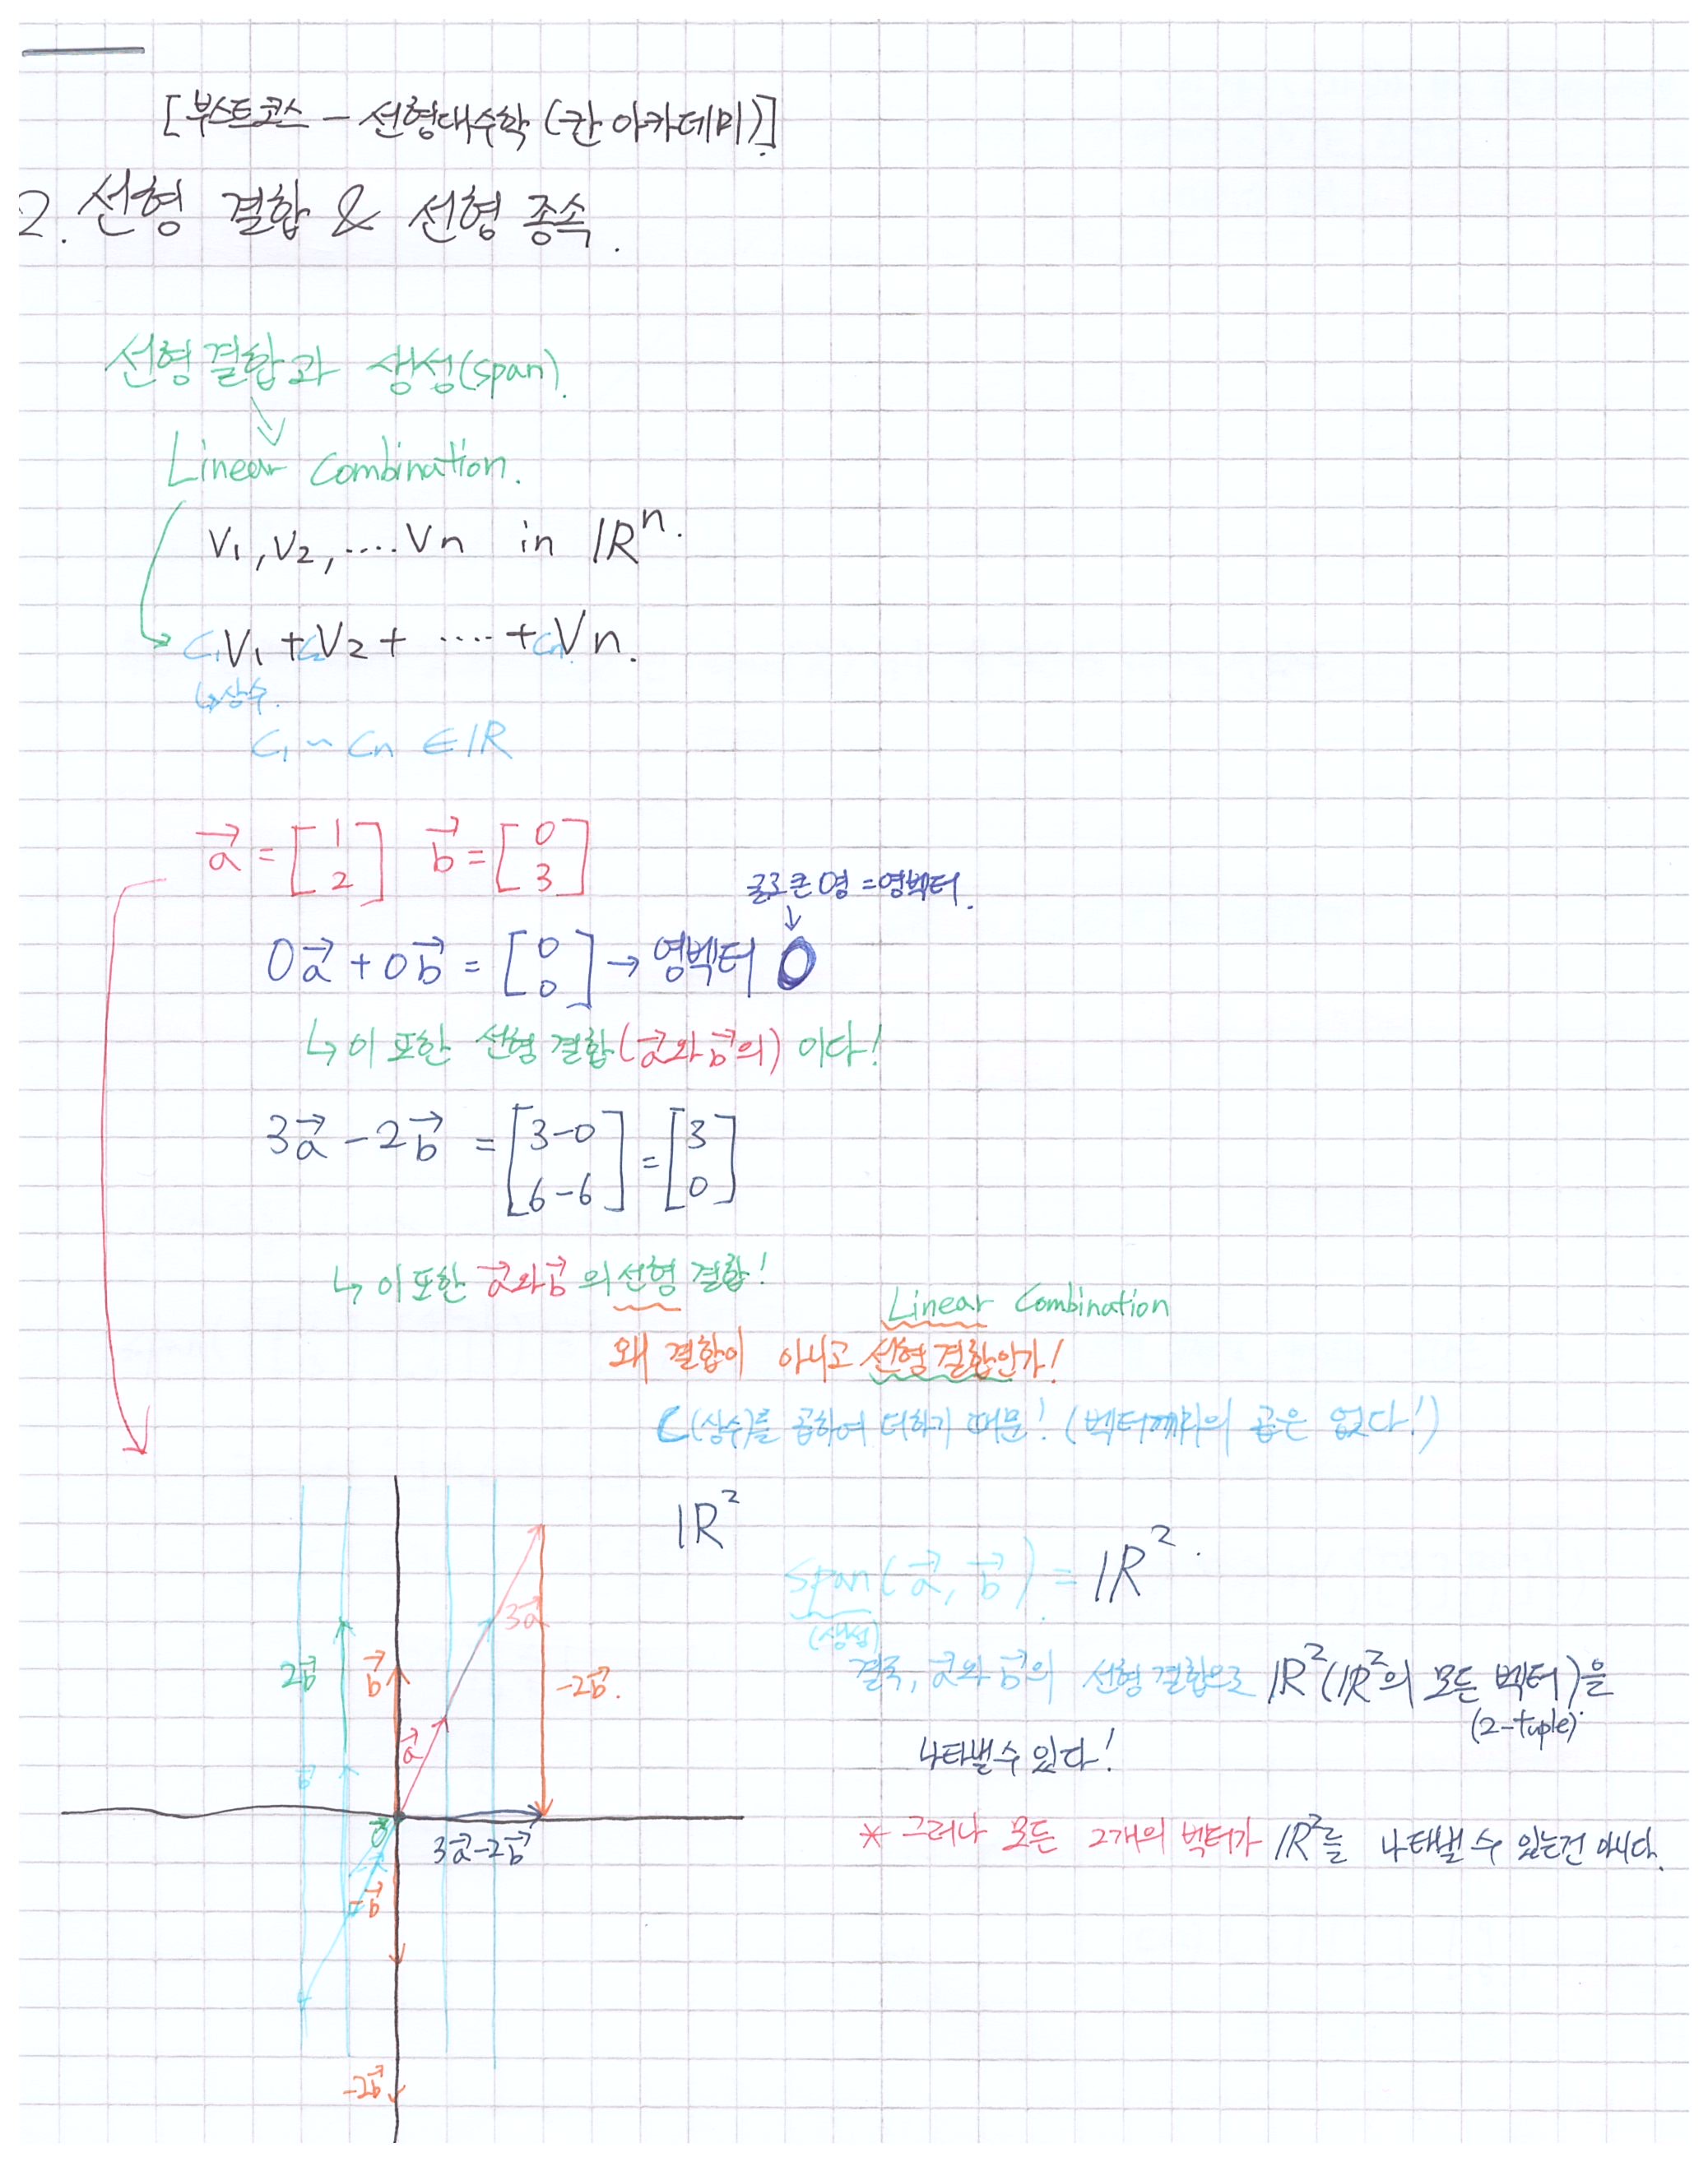 [부스트코스 - 선형대수학 (칸 아카데미)]
2. 선형 결합 & 선형 종속.
선형결합과 생성(span).
Linear Combination.
V₁, V₂, .... Vn in ℝⁿ.
C₁V₁ + C₂V₂ + .... + CnVn.
↳ 상수.
C₁ ~ Cn ∈ ℝ
a⃗ = [1 2] b⃗ = [0 3]
굵고 큰 영 = 영벡터.
0a⃗ + 0b⃗ = [0 0] → 영벡터 0
↳ 이 또한 선형 결합(a⃗와 b⃗의) 이다!
3a⃗ - 2b⃗ = [3-0 6-6] = [3 0]
↳ 이 또한 a⃗와 b⃗의 선형 결합!
Linear Combination
왜 결합이 아니고 선형 결합인가!
C(상수)를 곱하여 더하기 때문! (벡터끼리의 곱은 없다!)
ℝ²
span(a⃗, b⃗) = ℝ².
(생성)
3a⃗
2b⃗ b⃗ -2b⃗.
결국, a⃗와 b⃗의 선형 결합으로 ℝ²(ℝ²의 모든 벡터)을
(2-tuple).
a⃗
나타낼 수 있다!
b⃗
3a⃗-2b⃗
* 그러나 모든 2개의 벡터가 ℝ²를 나타낼 수 있는건 아니다.
-b⃗
-2b⃗